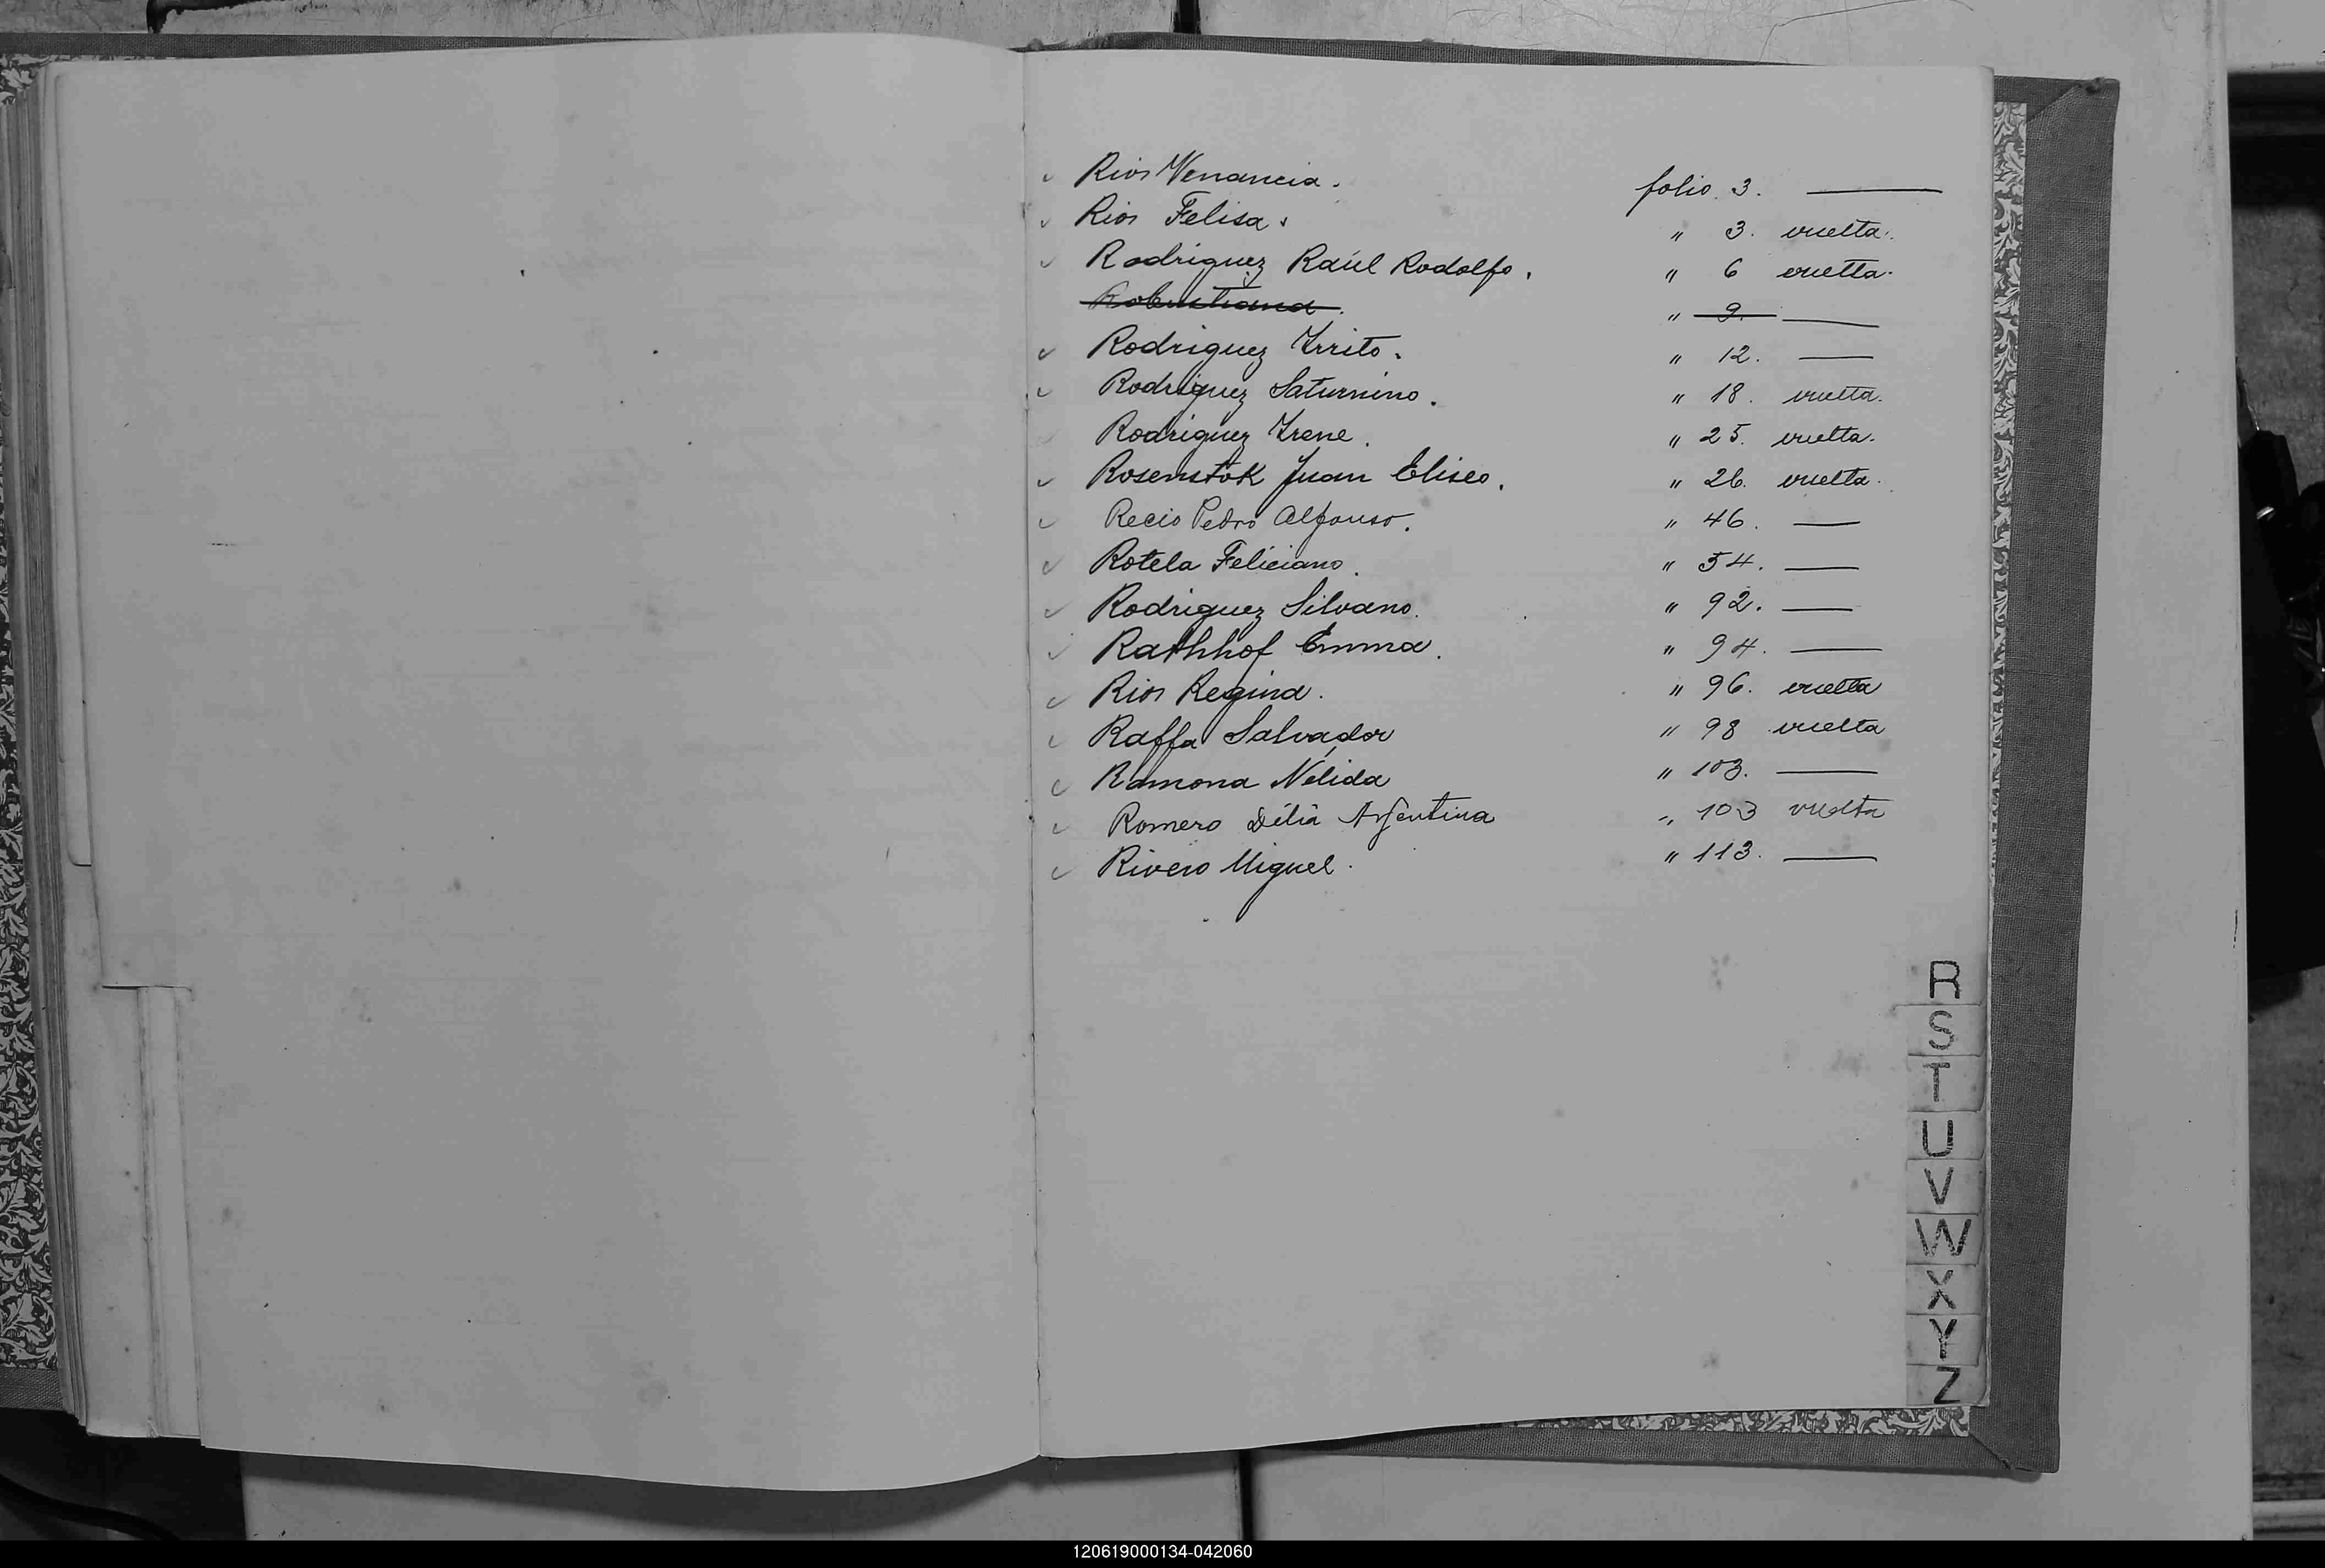 Rios Venancia. folio. 3. ———
Rios Felisa. " 3. vuelta.
Rodriguez Raúl Rodolfo. " 6 vuelta.
Robustiana. " 9. ———
Rodriguez Irrito. " 12. ———
Rodriguez Saturnino. " 18. vuelta.
Rodriguez Irene. " 25. vuelta.
Rosenstok Juan Eliseo. " 26. vuelta.
Recio Pedro Alfonso. " 46. ———
Rotela Feliciano. " 54. ———
Rodriguez Silvano. " 92. ———
Rathhof Emma. " 94. ———
Rios Regina. " 96. vuelta
Raffa Salvador " 98 vuelta
Ramona Nélida " 103. ———
Romero Délia Argentina " 103 vuelta
Rivero Miguel. " 113. ———
R
S
T
U
V
W
X
Y
Z
120619000134-042060